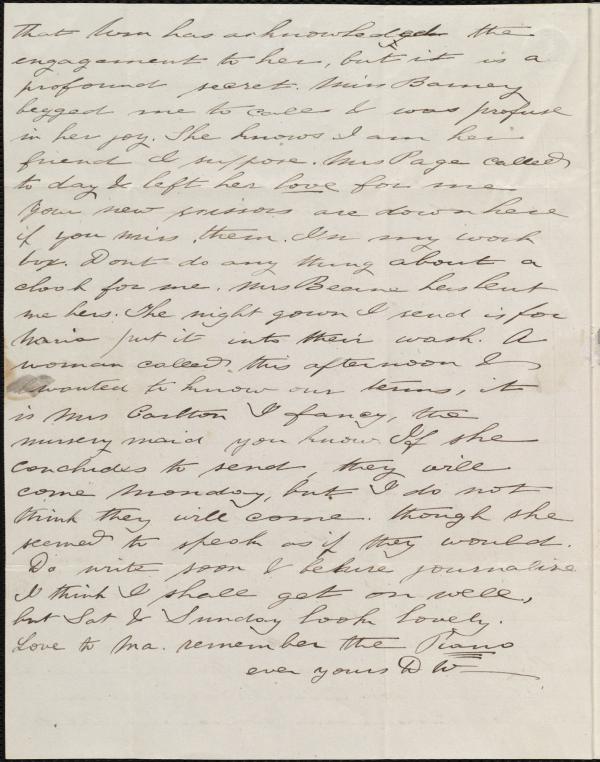 That Wm has acknowledged the
engagement to her, but it is a
profound secret. Miss Barney
begged me to call & was profuse
in her joy. She knows I am her
friend I suppose. Mrs Page called
to day & left her love for me
Your new scissors are down here
if you miss them. In my work
box. Dont do any thing about a
cloak for me. Mrs Beane has lent
me hers. The night gown I send is for
Maria put it into their wash. A
woman called this afternoon &
wanted to know our terms, it
is Mrs Carlton I fancy, the
nursery maid you know. If she
concludes to send, they will
come Monday, but I do not
think they will come. though she
seemed to speak as if they would.
Do write soon & be sure journalize
I think I shall get on well,
but Sat & Sunday look lovely.
Love to Ma. remember the Piano
ever yours D W